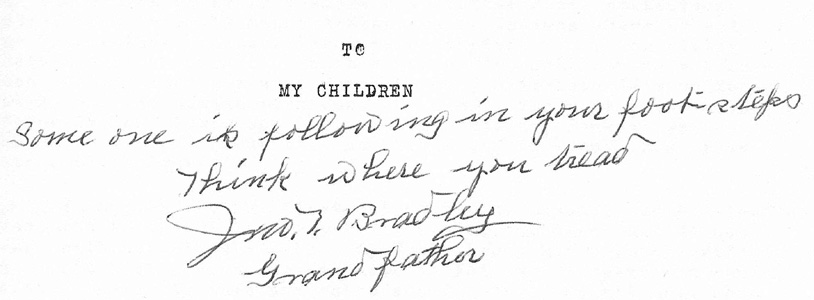 TO
MY CHILDREN
Some one is following in your foot steps
Think where you tread
Jno. T. Bradley
Grand father